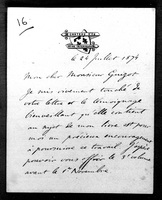 16
le 24 Juillet 1874
Mon cher Monsieur Guizot
Je suis vivement touché de
votre lettre et le témoignage
bienveillant qu'elle contient
au sujet de mon livre est pour
moi un précieux encouragement
à poursuivre ce travail. J'espère
pouvoir vous offrir le 3e volume
avant le 1er novembre